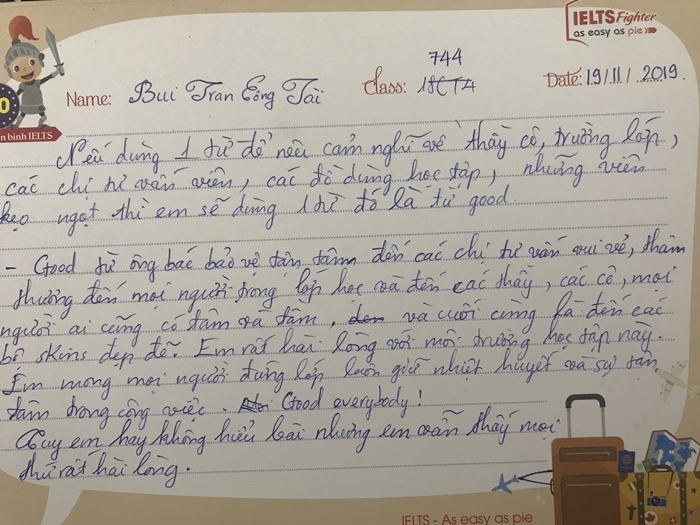 IELTS Fighter
as easy as pie
744
Name: Bui Tran Công Tài Class: 18CTA Date: 19/11/2019.
n binh IELTS
Nếu dùng 1 từ để nêu cảm nghĩ về thầy cô, trường lớp,
các chị tư vấn viên, các đồ dùng học tập, những viên
kẹo ngọt thì em sẽ dùng 1 từ đó là từ good.
- Good từ ông bác bảo vệ tận tâm đến các chị tư vấn vui vẻ, thâm
thường đến mọi người trong lớp học và đến các thầy, các cô, mọi
người ai cũng có tâm và tầm, và cuối cùng là đến các
bộ skins đẹp đẽ. Em rất hai long với môi trường học tập này.
Em mong mọi người đứng lớp luôn giữ nhiệt huyết và sự tận
tâm trong công việc. Good everybody!
Tuy em hay không hiểu bài nhưng em vẫn thấy mọi
thứ rất hài lòng.
IELTS - As easy as pie